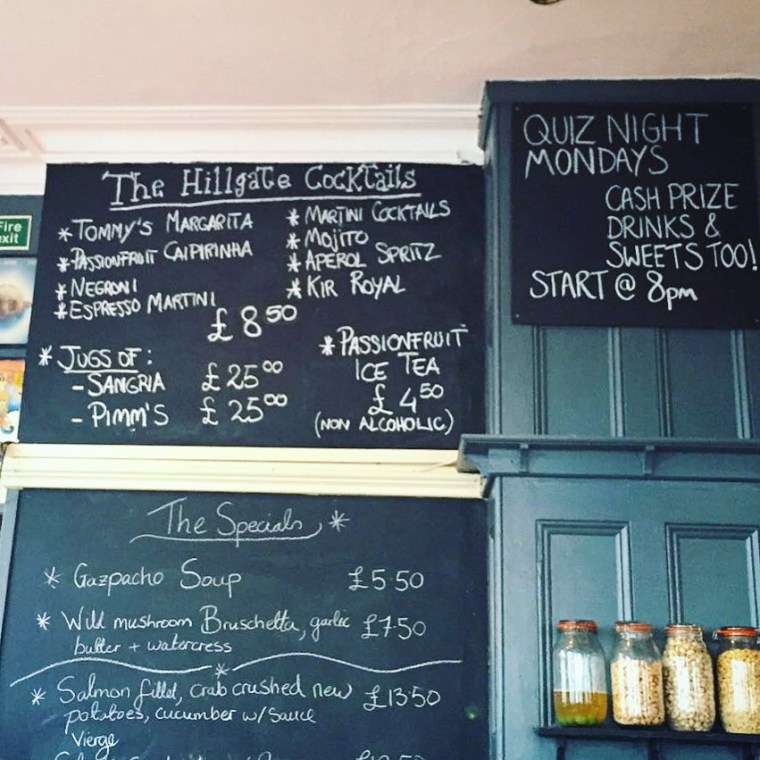 The Hillgate Cocktails
* Tommy's Margarita
* Passionfruit Caipirinha
* Negroni
* Espresso Martini
* Martini Cocktails
* Mojito
* Aperol Spritz
* Kir Royal
£8.50
* Jugs of:
- Sangria £25.00
- Pimm's £25.00
* Passionfruit
Ice Tea
£4.50
(Non Alcoholic)
QUIZ NIGHT
MONDAYS
CASH PRIZE
DRINKS &
SWEETS TOO!
START @ 8pm
Fire
exit
The Specials *
* Gazpacho Soup £5.50
* Wild mushroom Bruschetta, garlic £7.50
butter + watercress
* Salmon fillet, crab crushed new £13.50
potatoes, cucumber w/ sauce
Vierge